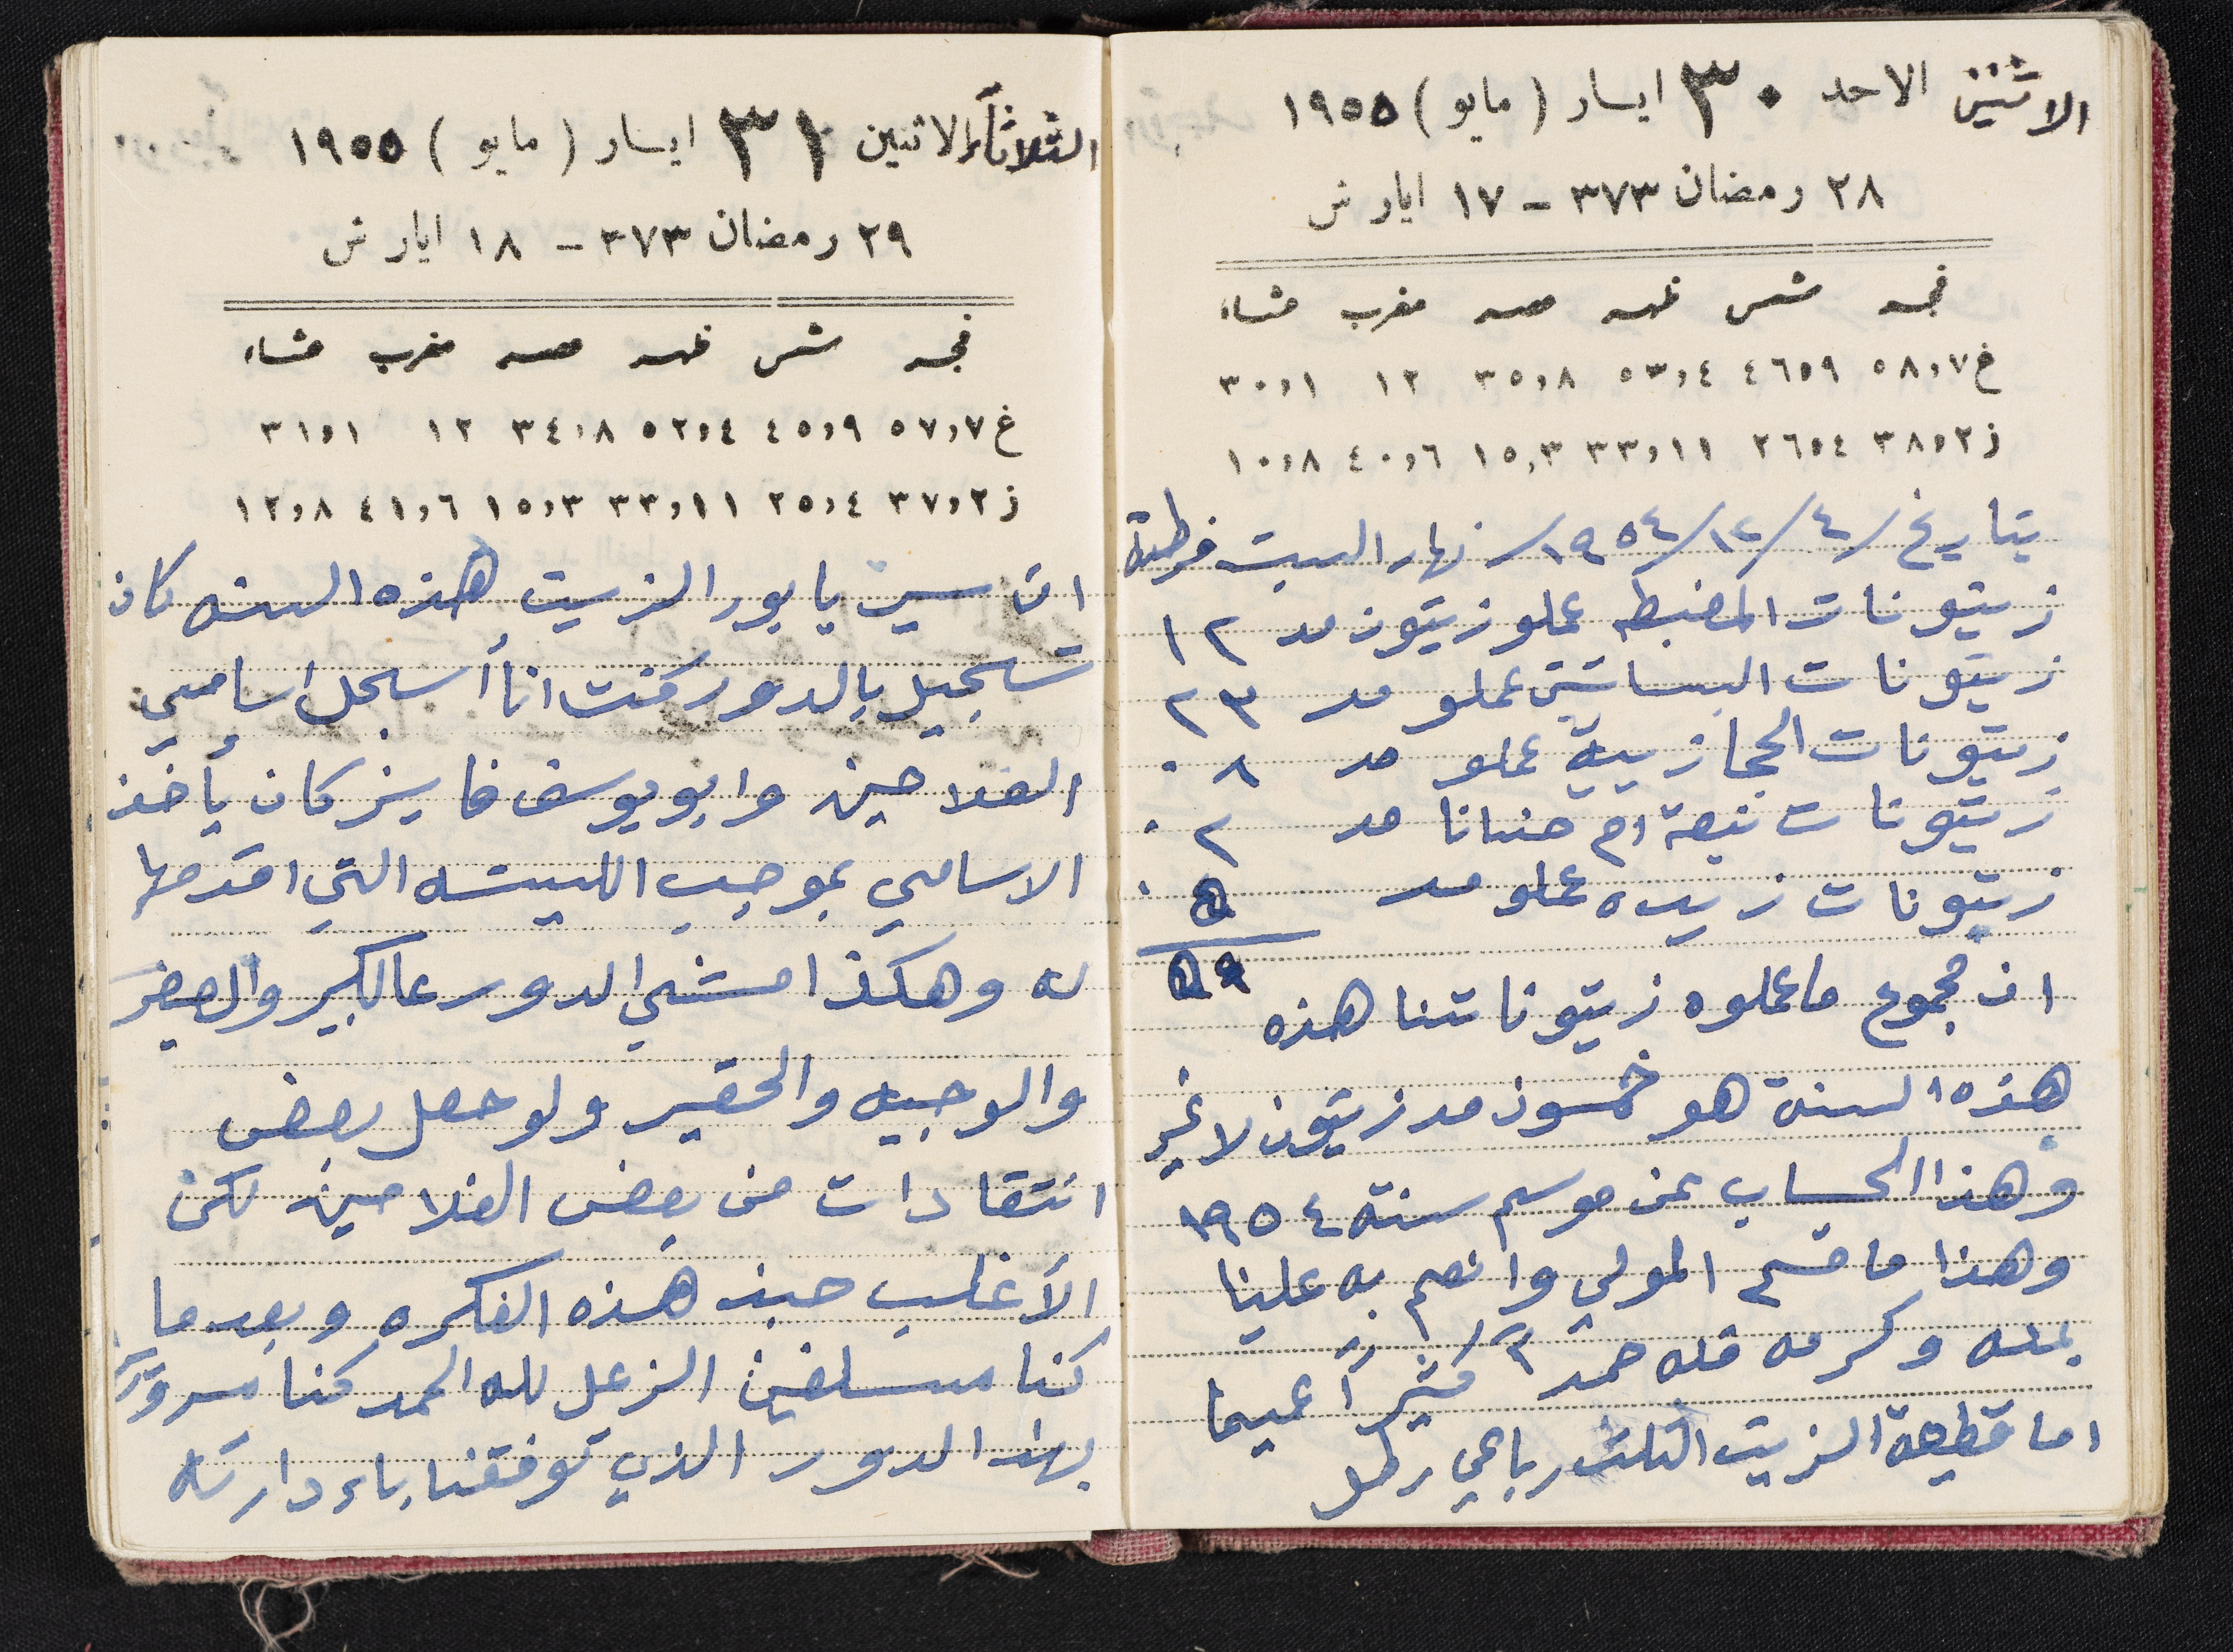 الاثنين الاحد ٣٠ ايار (مايو) ١٩٥٥
٢٨ رمضان ٣٧٣ - ١٧ ايار ش
فجر شمس ظهر عصر مغرب عشاء
غ ٥٨,٧ ٤٦,٩ ٥٣,٤ ٣٥,٨ ١٢ ٣٠,١
ز ٣٨,٢ ٢٦,٤ ٣٣,١١ ١٥,٣ ٤٠,٦ ١٠,٨
بتاريخ ٤/١٢/١٩٥٤ نهار السبت فرطت
زيتونات المضبطه عملو زيتون مد ١٢
زيتونات البساتين عملو مد ٢٣
زيتونات الحجازيية عملو مد ٠٨
زيتونات نبعة ام حنانا مد ٠٢
زيتونات زيده عملو مد ٠٥
٥٠
ان مجموع ما عملوه زيتوناتنا هذه
هذه السنة هو خمسون مد زيتون لا غير
وهذا الحساب عن موسم سنة ١٩٥٤
وهذا ما قسم المولي وانعم به علينا
بمنه وكرمه فله حمدًا كثيرًا عميما
اما قطيعة الزيت الثلث رباعي رطل
الثلاثاء الاثنين ٣١ ايار (مايو) ١٩٥٥
٢٩ رمضان ٣٧٣ - ١٨ ايار ش
فجر شمس ظهر عصر مغرب عشاء
غ ٥٧,٧ ٤٥,٩ ٥٢,٤ ٣٤,٨ ١٢ ٣١,١
ز ٣٧,٢ ٢٥,٤ ٣٣,١١ ١٥,٣ ٤١,٦ ١٢,٨
ان سير بابور الزيت هذه السنه كان
تسجيل بالدور كنت انا أسجل اسامي
الفلاحين وابو يوسف فايز كان يأخذ
الاسامي بموجب الليسته التي اقدمها
له وهكذا مشي الدور عالكبير والصغير
والوجيه والحقير ولو حصل بعض
انتقادات من بعض الفلاحين لكن
الأغلب حبذ هذه الفكره وبعدما
كنا مسلفين الزعل لله الحمد كنا مسرورين
بهذا الدور الذي توفقنا بإدارته